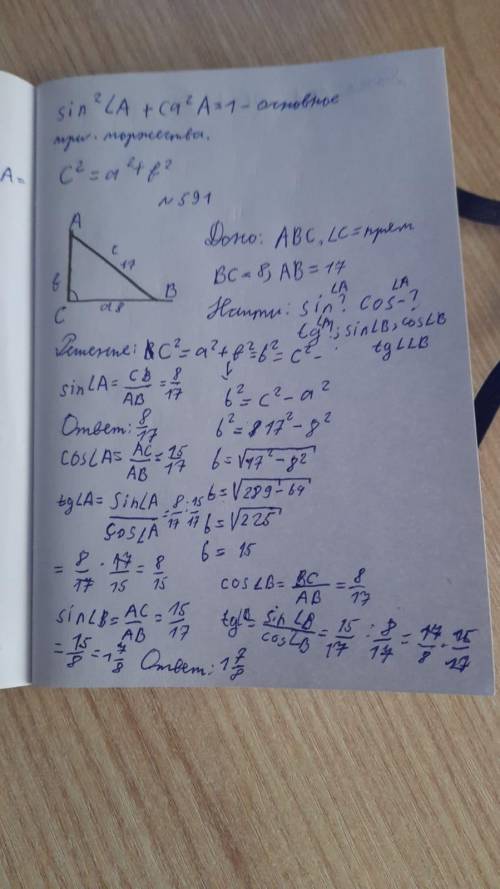 sin²∠A + Cq²A=1 - основное
три. торжества.
A =
C² = a² + b²
№591
A
c
17
b
C
a 8
B
Дано: ABC, ∠C = прям
BC = 8, AB = 17
Найти: sin∠A? cos∠A-?
tg∠A; sin∠B; cos∠B
tg∠B
Решение: C² = a² + b² = b² = c² -
↓
sin∠A = CB/AB = 8/17
b² = c² - a²
Ответ: 8/17
b² = 17² - 8²
cos∠A = AC/AB = 15/17
b = √17² - 8²
tg∠A = sin∠A/cos∠A = 8/17 : 15/17
b = √289-64
b = √225
b = 15
= 8/17 · 17/15 = 8/15
cos∠B = BC/AB = 8/17
sin∠B = AC/AB = 15/17
tg∠B = sin∠B/cos∠B = 15/17 : 8/17 = 17/8 · 15/17
= 15/8 = 1 7/8 Ответ: 1 7/8